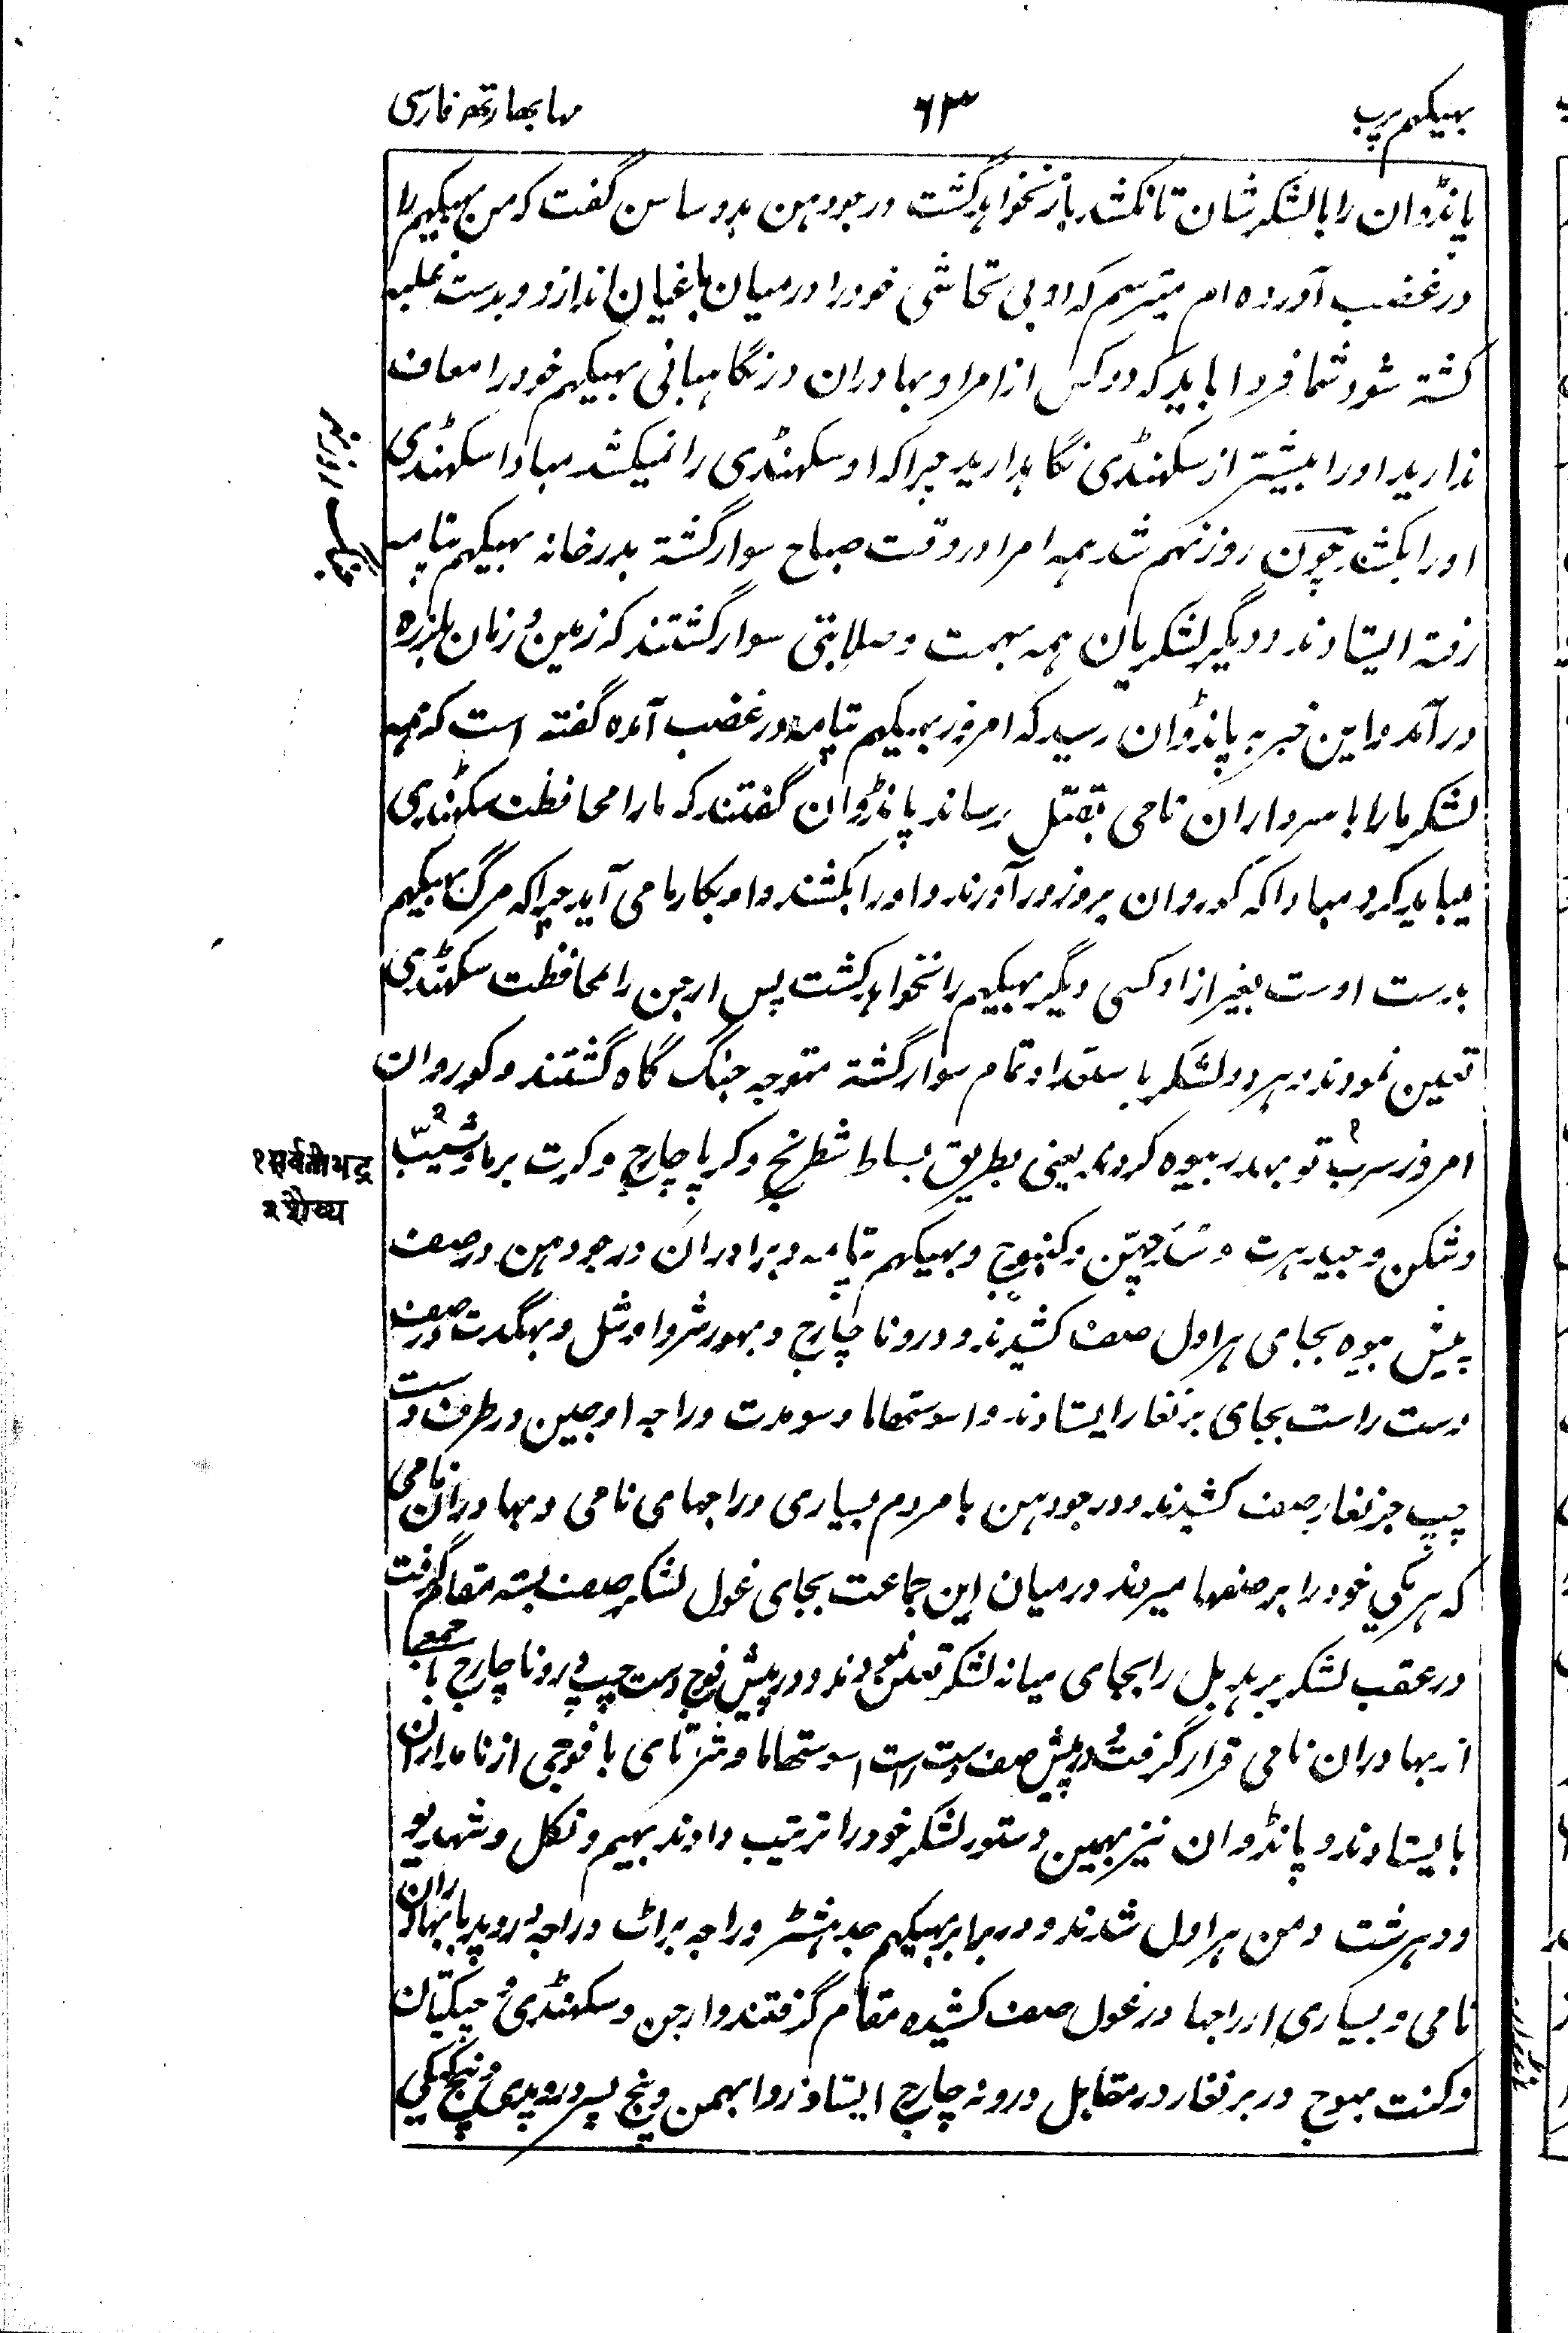 بهیکهم پرب
۶۳
مهابهارتهه فارسی
پانڈوان را با لشکر شان تا نکشد باز نخواهد گشت درجودهن بدوساسن گفت که من بهیکهم را
در غضب آورده ام میترسم که او بی تحاشی خود را درمیان باغیان اندازد و بدست غلبه
کشته شود شما فردا باید که دو کس از امرا و بهادران در نگاهبانی بهیکهم خود را معاف
ندارید او را بیشتر از سکهنڈی نگاهدارید چرا که او سکهنڈی را نمیکشد مبادا سکهنڈی
او را بکشد چون روز نهم شد همه امرا در وقت صباح سوار گشته بدرخانه بهیکهم پتامه
رفته ایستادند و دیگر لشکریان همه بهمت و صلابتی سوار گشتند که زمین و زمان بلرزه
درآمد و این خبر به پانڈوان رسید که امروز بهیکهم پتامه در غضب آمده گفته است که همه
لشکر ما را با سرداران نامی بقتل رساند پانڈوان گفتند که ما را محافظت سکهنڈی
میباید کرد مبادا که کوروان بروزور آورند و او را بکشند و او بکار ما می آید چرا که مرگ بهیکهم
بدست اوست بغیر از او کسی دیگر بهیکهم را نخواهد کشت پس ارجن را بمحافظت سکهنڈی
تعین نمودند و هر دو لشکر باستعداد تمام سوار گشته متوجه جنگ گاه گشتند و کوروان
امروز سرب تو بهدر بیوه کردند یعنی بطریق بساط شطرنج و کرپاچارج و کرت برما و شیبّ
१ सर्वतोभद्र
२ शैव्य
و شکن و جیدرهت و سدچهن و کنبوج و بهیکهم پتامه و برادران درجودهن در صف
پیش بیوه بجای هراول صف کشیدند و دروناچارج و بهورشروا و شل و بهگدت در صف
دست راست بجای برنغار ایستادند و اسوتهاما و سومدت و راجه اوجین در طرف دست
چپ جرنغار صف کشیدند و درجودهن با مردم بسیاری و راجهای نامی و بهادران نامی
که هر یکی خود را بر صفها میزند درمیان این جماعت بجای غول لشکر صف بسته مقام گرفت
در عقب لشکر برهدبل را بجای میانه لشکر تعین نمودند و در پیش فوج دست چپ دروناچارج با جمعی
از بهادران نامی قرار گرفت و در پیش صف دست راست اسوتهاما و شرتای با فوجی از نامداران
بایستادند و پانڈوان نیز بهمین دستور لشکر خود را ترتیب دادند بهیم و نکل و شهدیو
و دهرشت دمن هراول شدند و در برابر بهیکهم جدهشٹر و راجه براٹ و راجه دروپد با بهادران
نامی و بسیاری از راجها در غول صف کشیده مقام گرفتند و ارجن و سکهنڈی و چیکتان
و کنت بهوج در برنغار در مقابل درونه چارج ایستادند و ابهمن و پنج پسر دروپدی و پنج کیکی